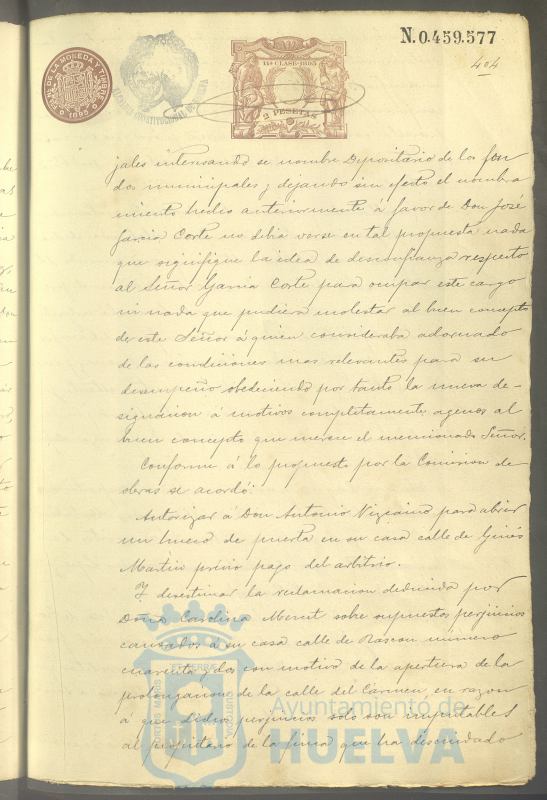 N. 0.459.577
404
FAB. DE LA MONEDA Y TIMBRE
1895
11ª CLASE-1895
2 PESETAS
jales interesando se nombre Depositario de los fon
dos municipales y dejando sin efecto el nombra
miento hecho anteriormente á favor de Don José
Garcia Corte no debia verse en tal propuesta nada
que signifique la idea de desconfianza respecto
al Señor Garcia Corte para ocupar este cargo
ni nada que pudiera molestar al buen concepto
de este Señor á quien consideraba adornado
de las condiciones mas relevantes para su
desempeño obedeciendo por tanto la nueva de-
signacion á motivos completamente agenos al
buen concepto que merece el mencionado Señor.
Conforme á lo propuesto por la Comision de
obras se acordó:
Autorizar á Don Antonio Vizcaino para abrir
un hueco de puerta en su casa calle de Ginés
Martin previo pago del arbitrio.
Y desestimar la reclamacion deducida por
Doña Carolina sobre supuestos perjuicios
causados á su casa calle de Rascon número
cuarenta y dos con motivo de la apertura de la
prolongacion de la calle del Carmen, en razon
á que dichos perjuicios solo son imputables
al propietario de la finca que ha descuidado
PORTUS MARIS ET TERRÆ CUSTODIA
Ayuntamiento de
HUELVA